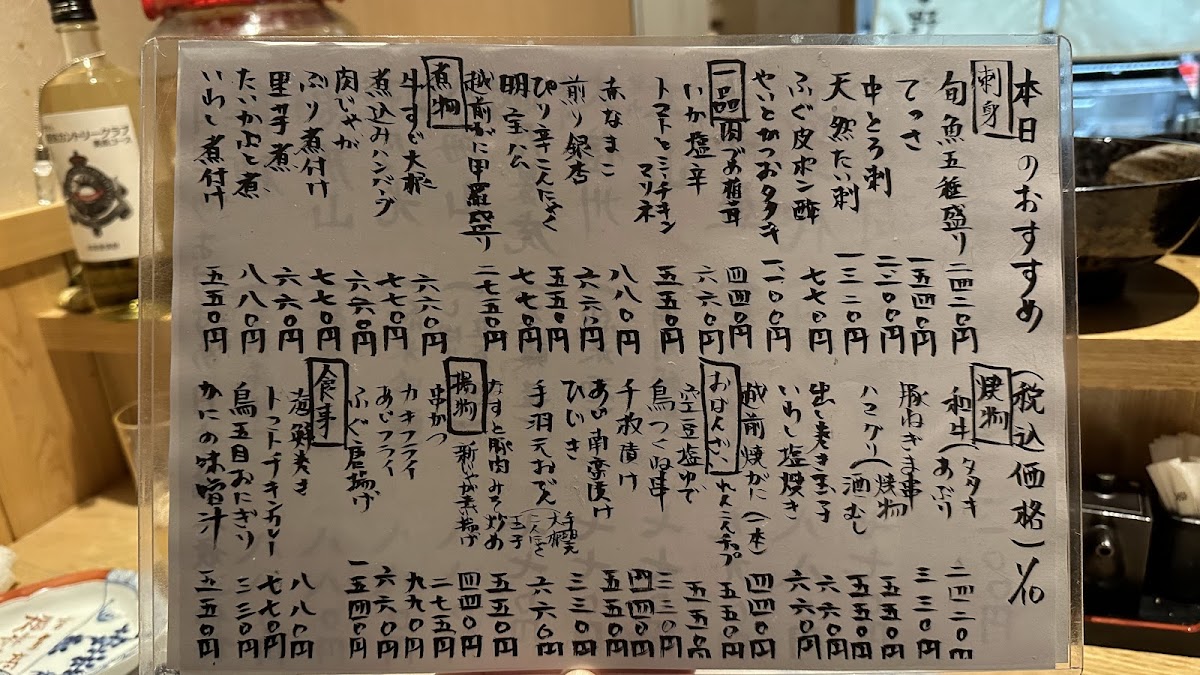 本日のおすすめ
(税込価格) 1/10
刺身
旬魚五種盛り 二四二〇円
てっさ 一五四〇円
中とろ刺 二二〇〇円
天然たい刺 一三二〇円
ふぐ皮ポン酢 七七〇円
やいとかつおタタキ 一一〇〇円
一品
肉みそ枝豆 四四〇円
いか塩辛 六六〇円
トマトとミニチキンマリネ 五五〇円
赤なまこ 八八〇円
煎り銀杏 六六〇円
ぴり辛こんにゃく 五五〇円
明宝ハム 七七〇円
越前がに甲羅盛り 二七五〇円
煮物
牛すじ大根 六六〇円
煮込みハンバーグ 七七〇円
肉じゃが 六六〇円
ぶり煮付け 七七〇円
里芋煮 六六〇円
たいかぶと煮 八八〇円
いわし煮付け 五五〇円
焼物
和牛(タタキ あぶり 二四二〇円
豚ねぎま串 三三〇円
ハマグリ(焼物 酒むし 五五〇円
出し巻き玉子 五五〇円
いわし塩焼き 六六〇円
越前焼がに(一本) 四四〇円
おばんざい
れんこんチップ 五五〇円
空豆塩ゆで 五五〇円
鳥つくね串 三三〇円
千枚漬け 四四〇円
あじ南蛮漬け 五五〇円
ひじき 三三〇円
手羽元おでん(手羽元 大根 こんにゃく 玉子 六六〇円
なすと豚肉みそ炒め 五五〇円
揚物
新じゃが素揚げ 四四〇円
串かつ 二七五円
カキフライ 九九〇円
あじフライ 六六〇円
ふぐ唐揚げ 一五四〇円
食事
海鮮巻き 八八〇円
トマトチキンカレー 七七〇円
鳥五目おにぎり 三三〇円
かにの味噌汁 五五〇円